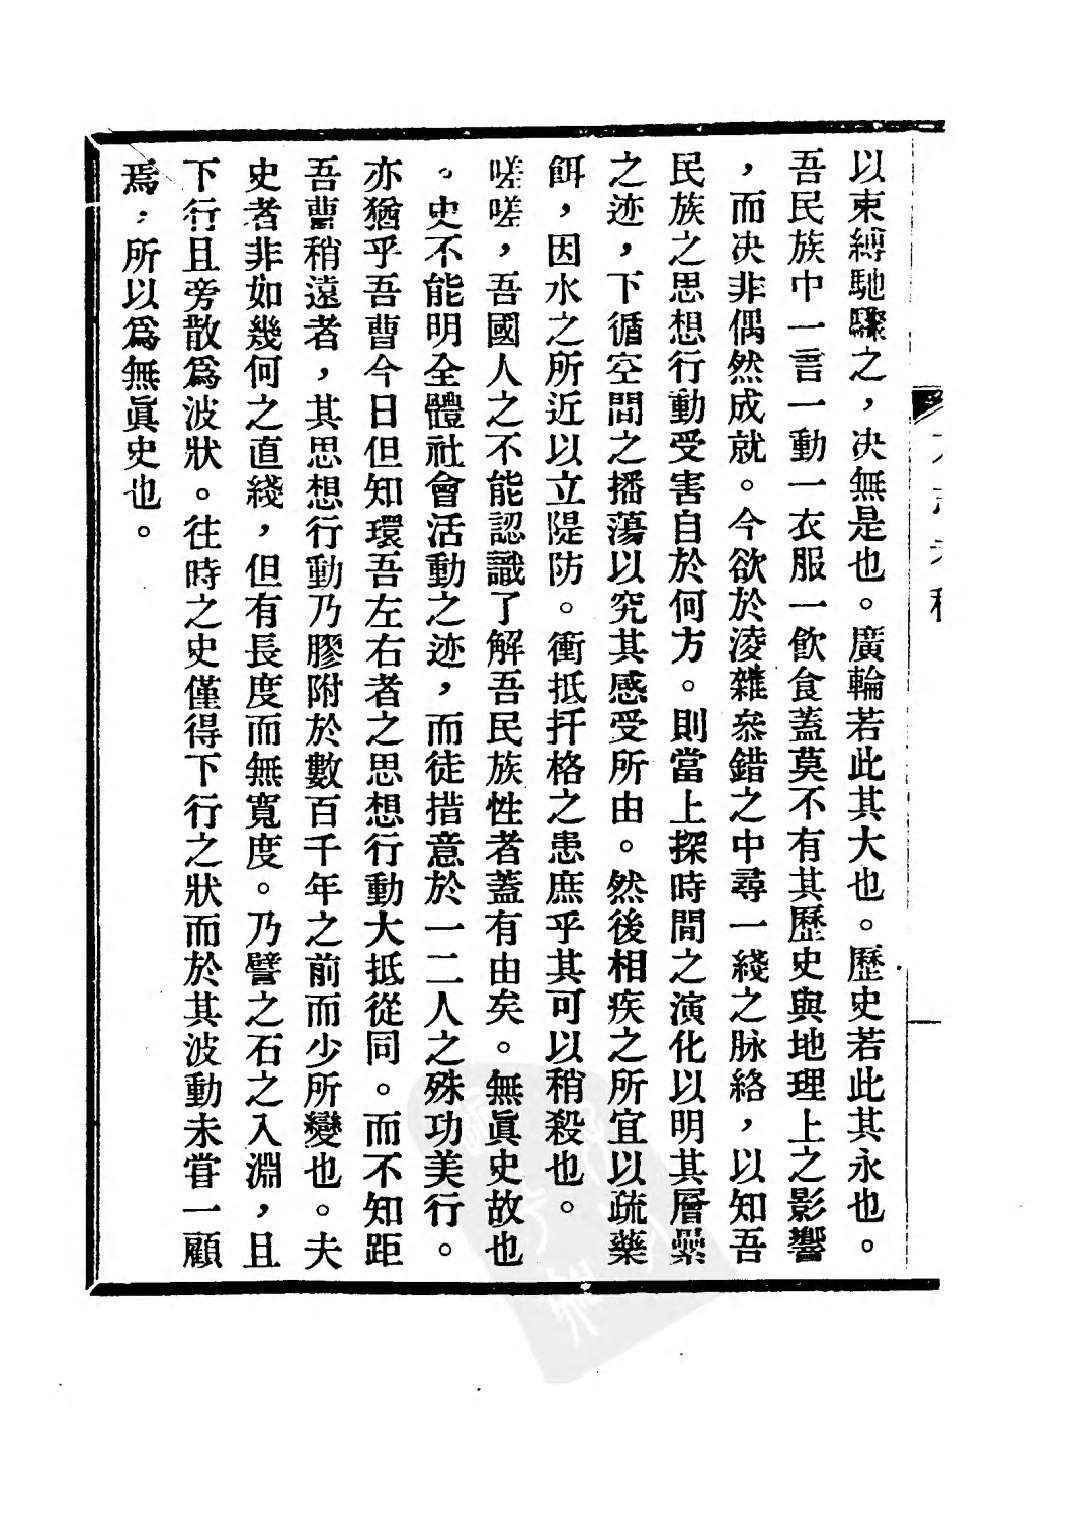 以束縛馳驟之，決無是也。廣輪若此其大也。歷史若此其永也。
吾民族中一言一動一衣服一飮食蓋莫不有其歷史與地理上之影響
，而决非偶然成就。今欲於淩雜叅錯之中尋一綫之脉絡，以知吾
民族之思想行動受害自於何方。則當上探時間之演化以明其層纍
之迹，下循空間之播蕩以究其感受所由。然後相疾之所宜以疏藥
餌，因水之所近以立隄防。衝抵扞格之患庶乎其可以稍殺也。
嗟嗟，吾國人之不能認識了解吾民族性者蓋有由矣。無眞史故也
。史不能明全體社會活動之迹，而徒措意於一二人之殊功美行。
亦猶乎吾曹今日但知環吾左右者之思想行動大抵從同。而不知距
吾曹稍遠者，其思想行動乃膠附於數百千年之前而少所變也。夫
史者非如幾何之直綫，但有長度而無寬度。乃譬之石之入淵，且
下行且旁散爲波狀。往時之史僅得下行之狀而於其波動未嘗一顧
焉，所以爲無眞史也。